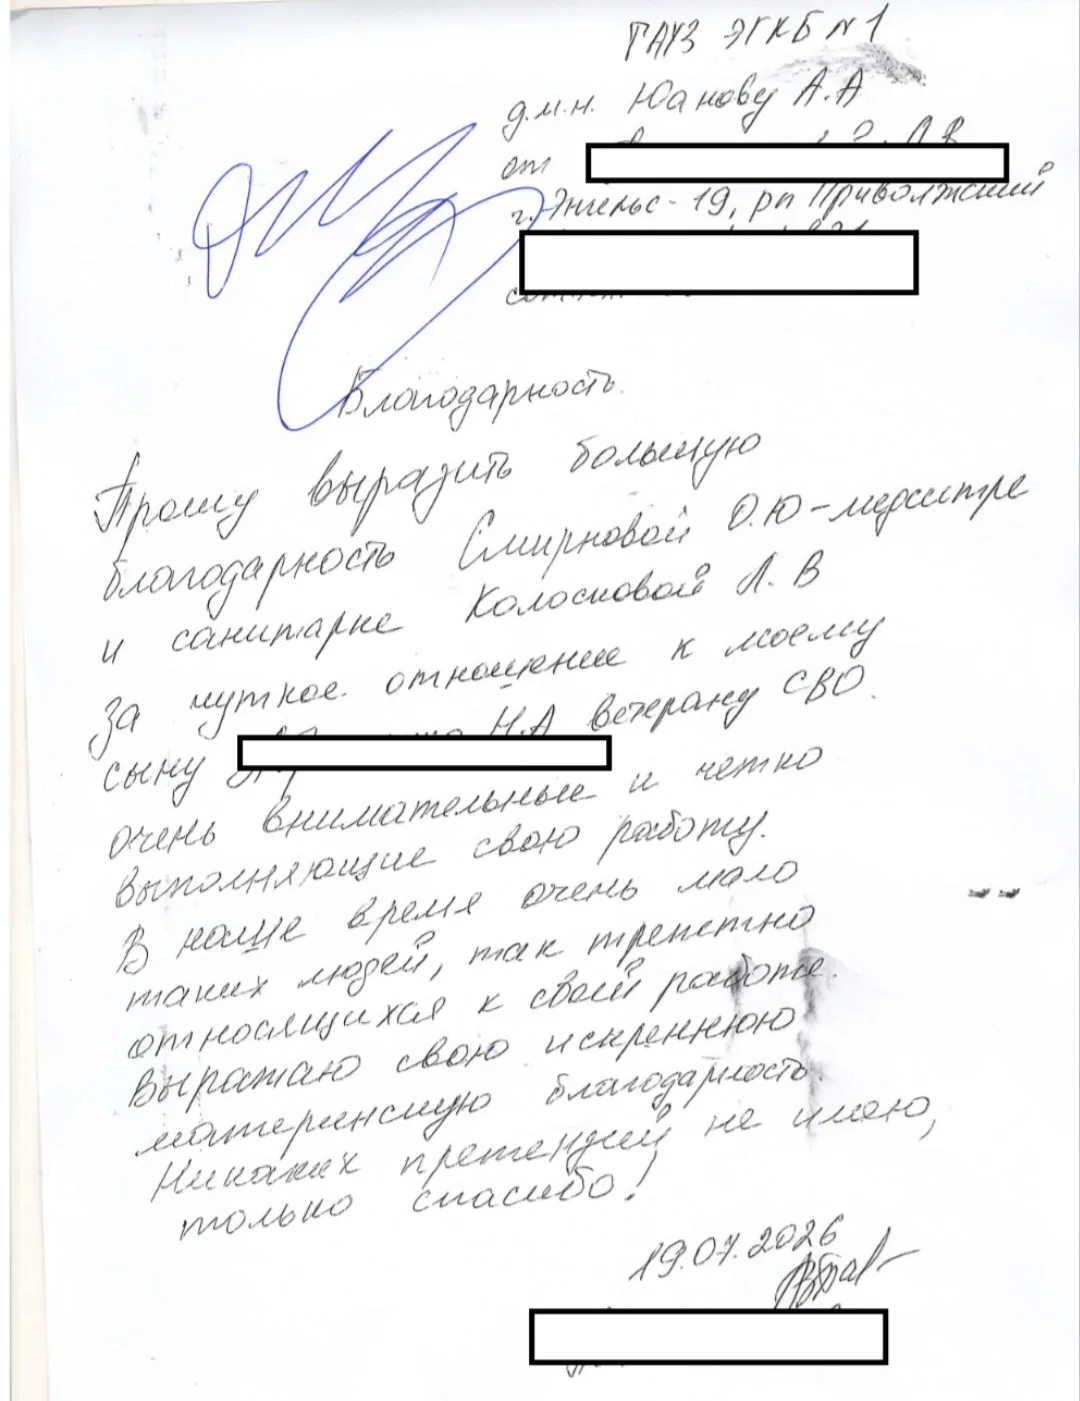 ГАУЗ ЭГКБ №1
д.м.н. Юанову А.А
от
г. Энгельс-19, рп Приволжский
Благодарность.
Прошу выразить большую
благодарность Смирновой О.Ю-медсестре
и санитарке Колосковой Л.В
за чуткое отношение к моему
сыну Н.А ветерану СВО.
очень внимательные и четко
выполняющие свою работу.
В наше время очень мало
таких людей, так трепетно
относящихся к своей работе.
Выражаю свою искреннюю
материнскую благодарность.
Никаких претензий не имею,
только спасибо!
19.07.2026